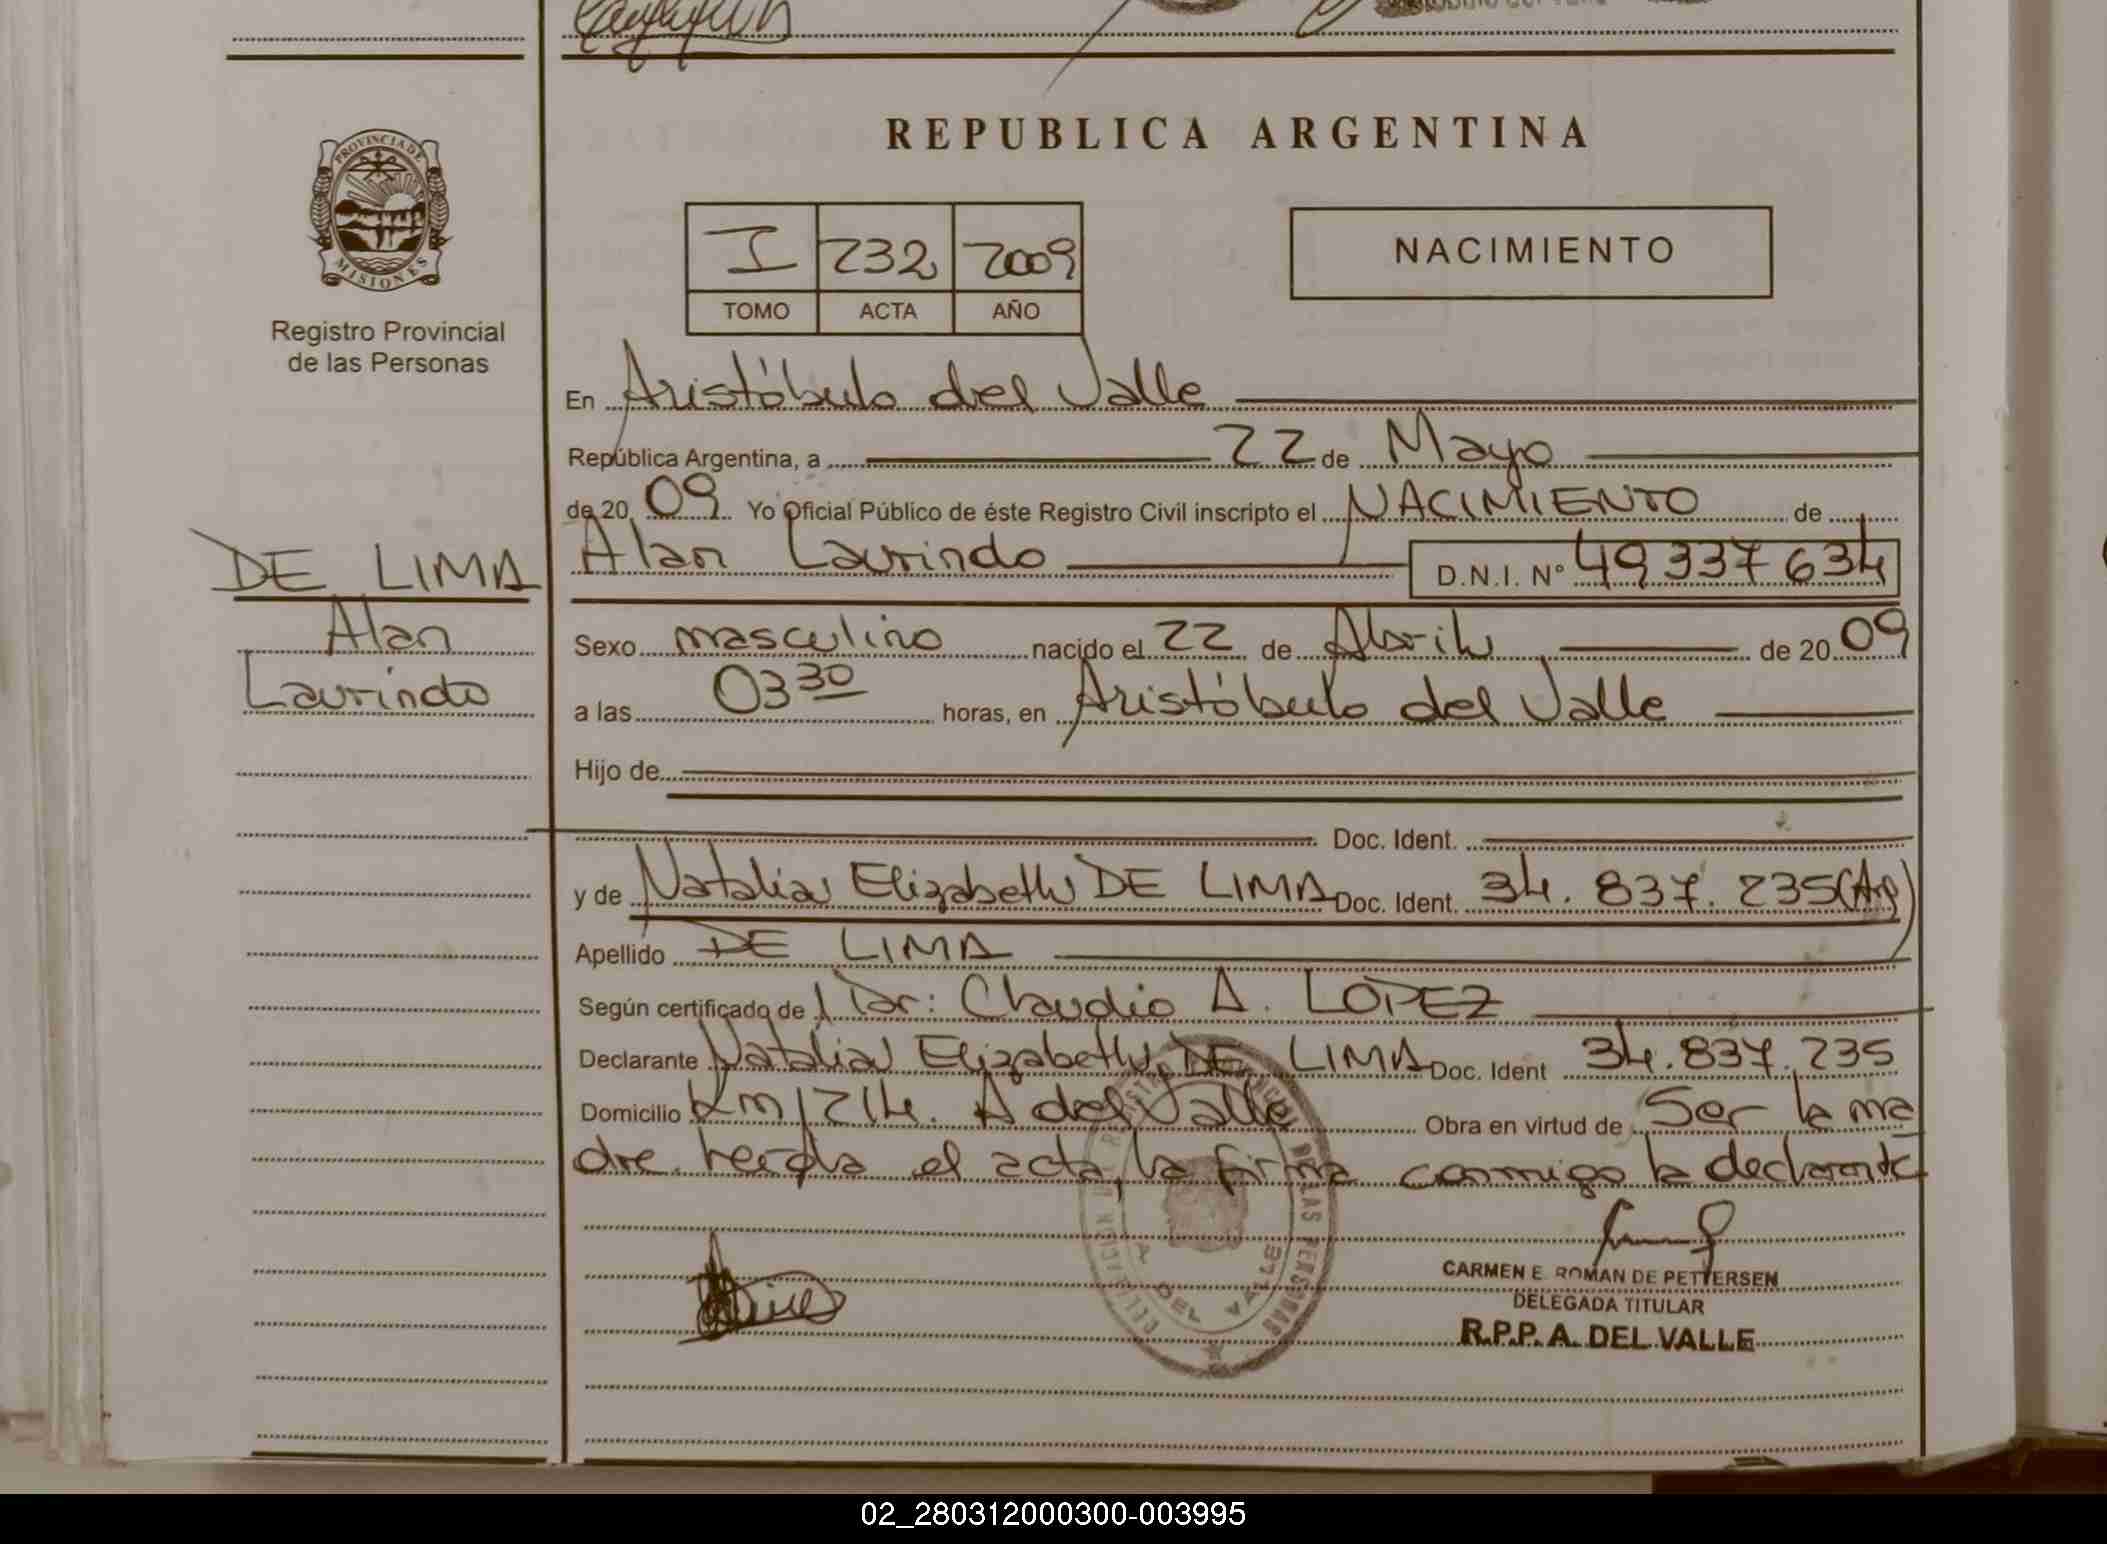 PROVINCIA DE
MISIONES
Registro Provincial
de las Personas
DE LIMA
Alan
Laurindo
REPUBLICA ARGENTINA
I 232 2009
TOMO ACTA AÑO
NACIMIENTO
En Aristóbulo del Valle
República Argentina, a 22 de Mayo
de 20 09 Yo Oficial Público de éste Registro Civil inscripto el NACIMIENTO de
Alan Laurindo D.N.I. Nº 49337634
Sexo masculino nacido el 22 de Abril de 20 09
a las 03 30 horas, en Aristóbulo del Valle
Hijo de
Doc. Ident.
y de Natalia Elizabeth DE LIMA Doc. Ident. 34.837.235 (Arg)
Apellido DE LIMA
Según certificado de Dr: Claudio A. LOPEZ
Declarante Natalia Elizabeth DE LIMA Doc. Ident 34.837.235
Domicilio Km 1214. A del Valle Obra en virtud de Ser la ma
dre. leída el acta, la firma conmigo la declarante
A. DEL VALLE
CARMEN E. ROMAN DE PETTERSEN
DELEGADA TITULAR
R.P.P. A. DEL VALLE
02_280312000300-003995